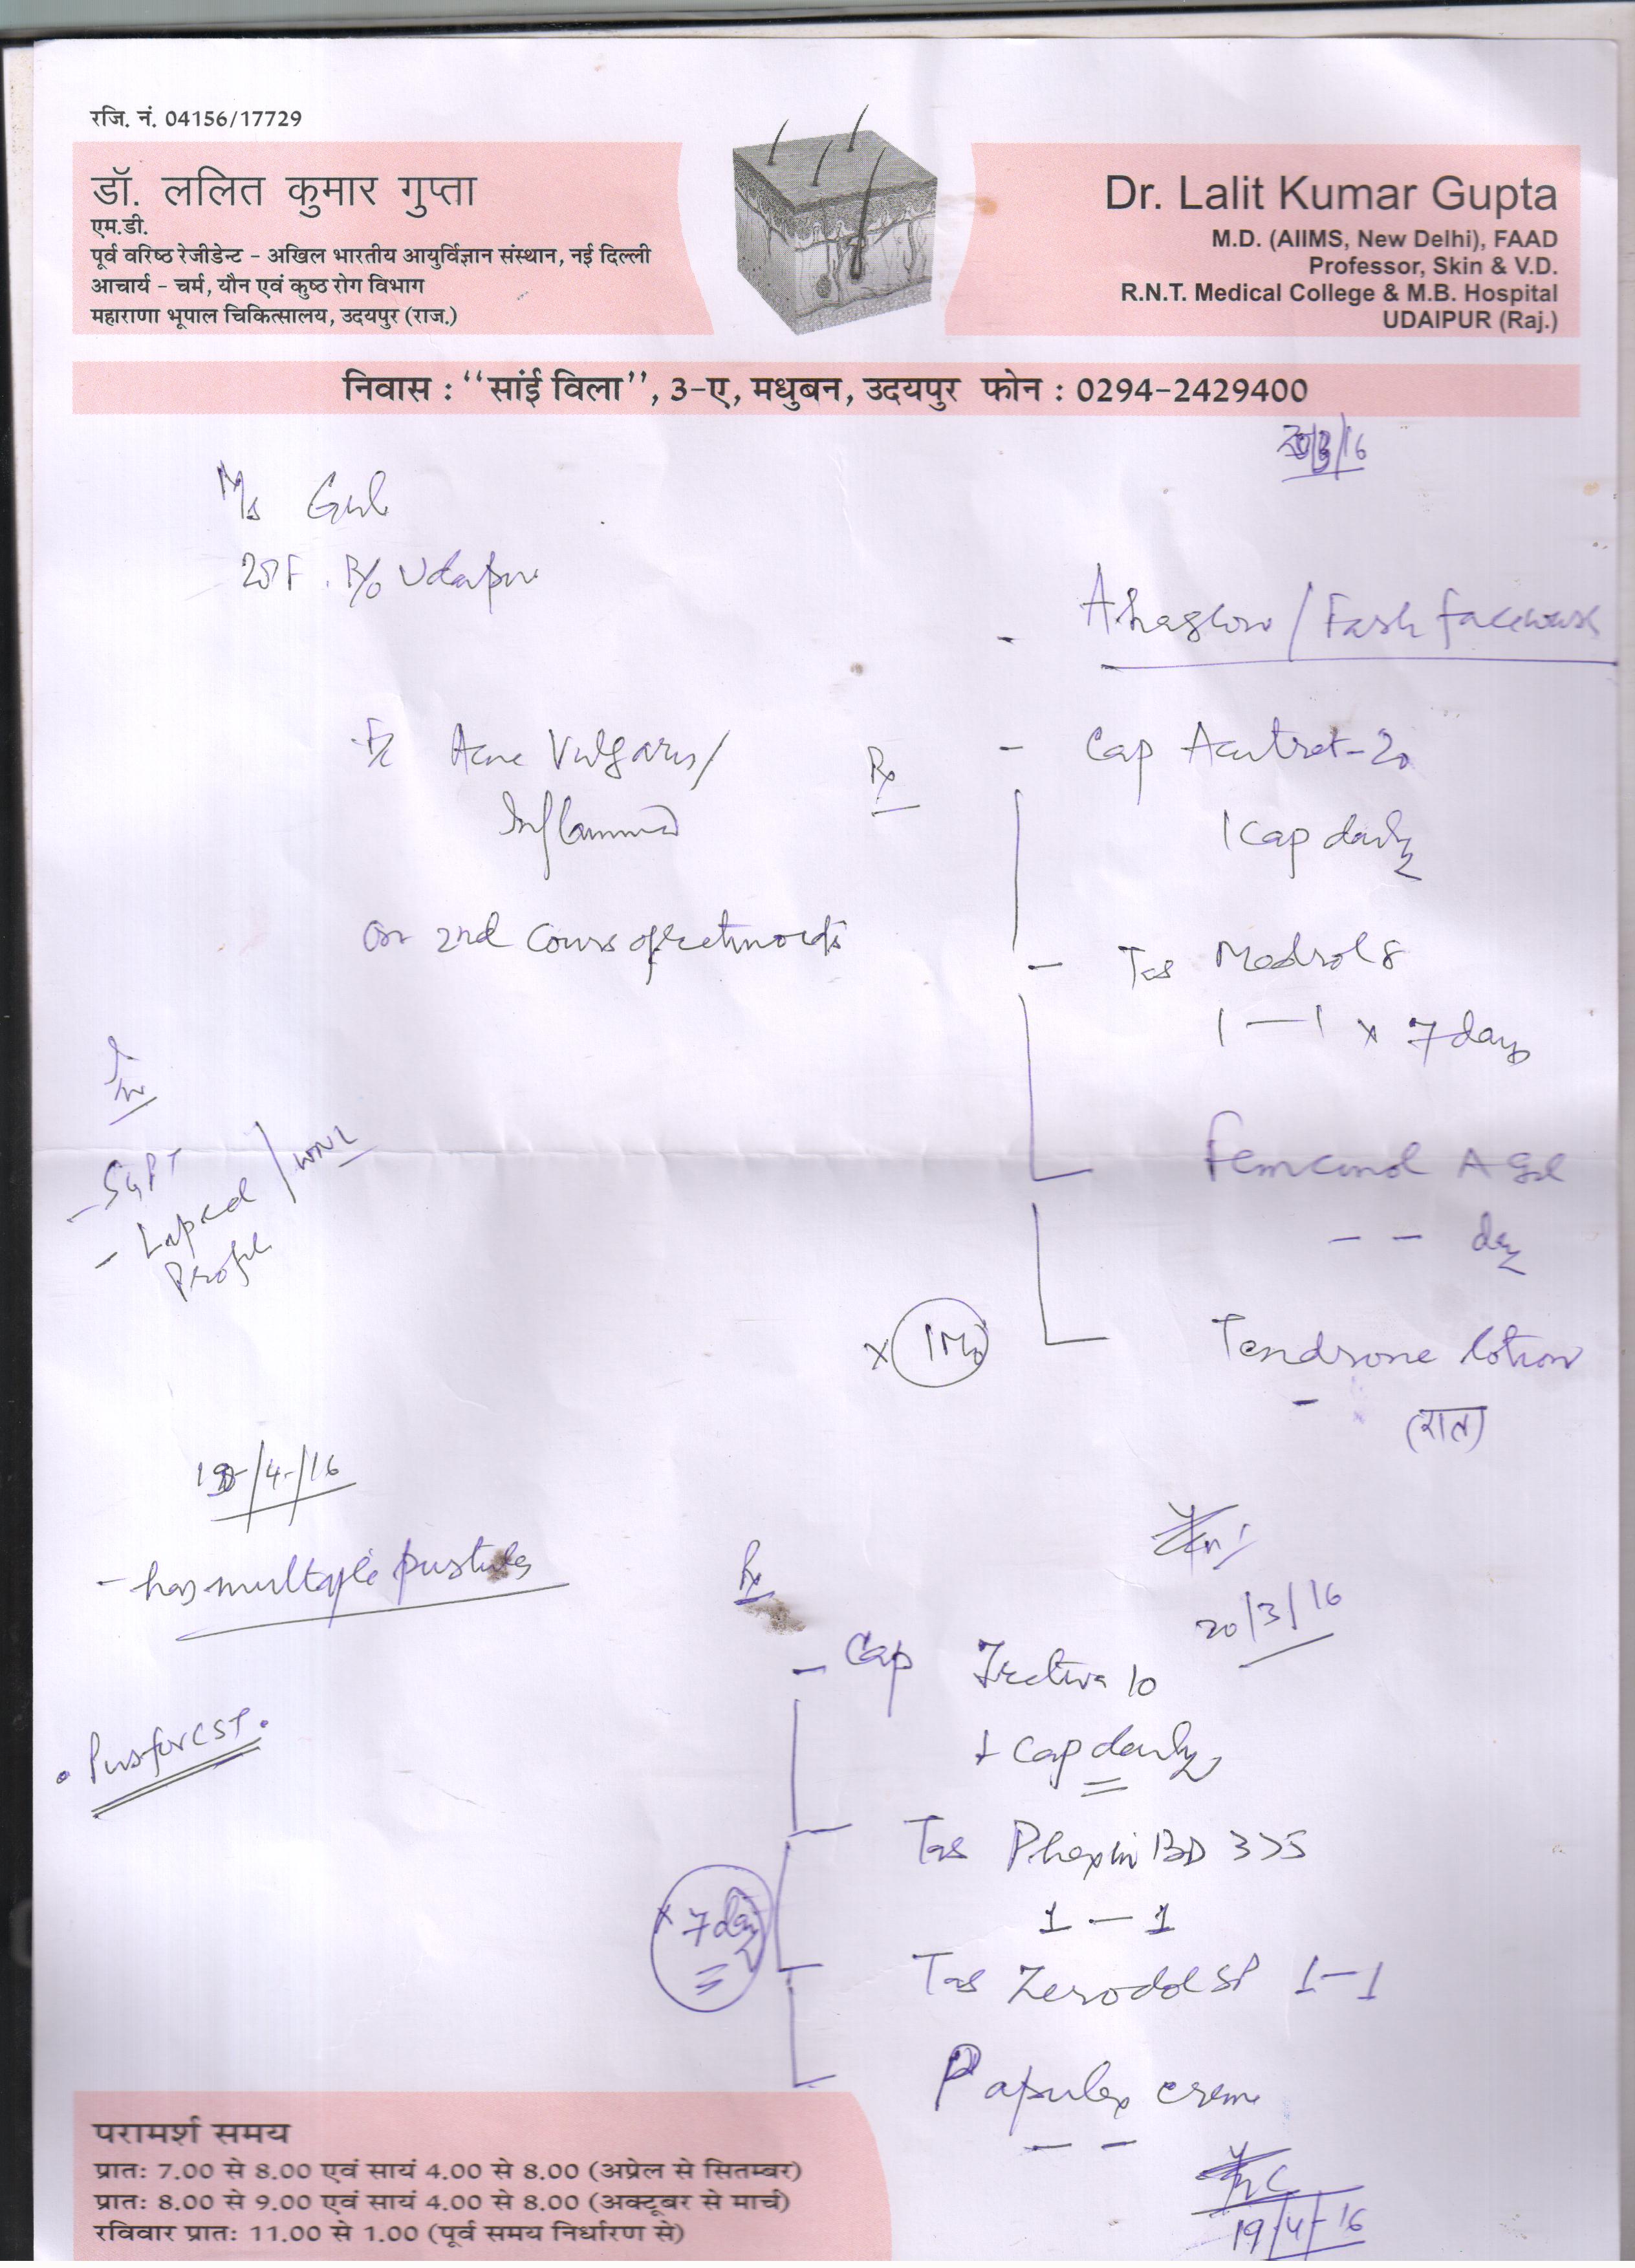 रजि. नं. 04156/17729
डॉ. ललित कुमार गुप्ता
एम.डी.
पूर्व वरिष्ठ रेजीडेन्ट - अखिल भारतीय आयुर्विज्ञान संस्थान, नई दिल्ली
आचार्य - चर्म, यौन एवं कुष्ठ रोग विभाग
महाराणा भूपाल चिकित्सालय, उदयपुर (राज.)
Dr. Lalit Kumar Gupta
M.D. (AIIMS, New Delhi), FAAD
Professor, Skin & V.D.
R.N.T. Medical College & M.B. Hospital
UDAIPUR (Raj.)
निवास : ‘‘सांई विला’’, 3-ए, मधुबन, उदयपुर फोन : 0294-2429400
Ms Gul
F. R/o Udaipur
- Ahaglow / Fash facewash
Acne Vulgaris /
Inflammed
on 2nd course of retinoids
Rx
- Cap Acutret-20
1 cap daily
- Tab Medrol 8
1 — 1 x 7 days
Femcinol A Gel
— — day
Tendrone lotion
- (रात)
x 1 Mo
Inv
- SGPT
- Lipid Profile / WNL
20/3/16
/4/16
- has multiple pustules
• Pus for CST.
Rx
- Cap Iretiva 10
1 cap daily
Tab Phexin BD 375
1 — 1
Tab Zerodol SP 1-1
Papulex creme
— —
x 7 day
19/4/16
परामर्श समय
प्रातः 7.00 से 8.00 एवं सायं 4.00 से 8.00 (अप्रेल से सितम्बर)
प्रातः 8.00 से 9.00 एवं सायं 4.00 से 8.00 (अक्टूबर से मार्च)
रविवार प्रातः 11.00 से 1.00 (पूर्व समय निर्धारण से)